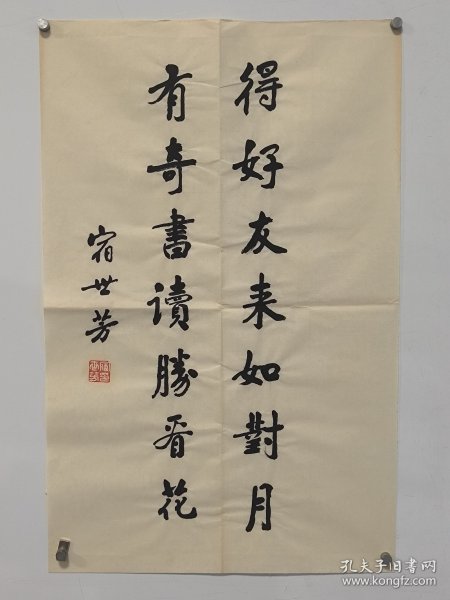 得好友来如對月
有奇書讀勝看花
宿世芳
孔夫子旧书网
www.kongfz.com